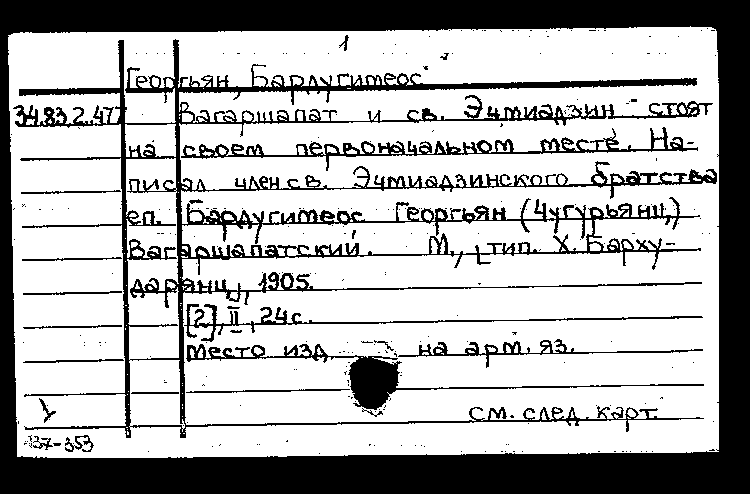 1
Георгьян, Бардугимеос
34.83.2.477 Вагаршапат и св. Эчмиадзин стоят
на своем первоначальном месте. На-
писал член св. Эчмиадзинского братства
еп. Бардугимеос Георгьян (Чугурьянц,)
Вагаршапатский. М., тип. Х. Барху-
дарянц, 1905.
[2], II, 24 с.
Место изд. на арм. яз.
см. след. карт.
1
137-353